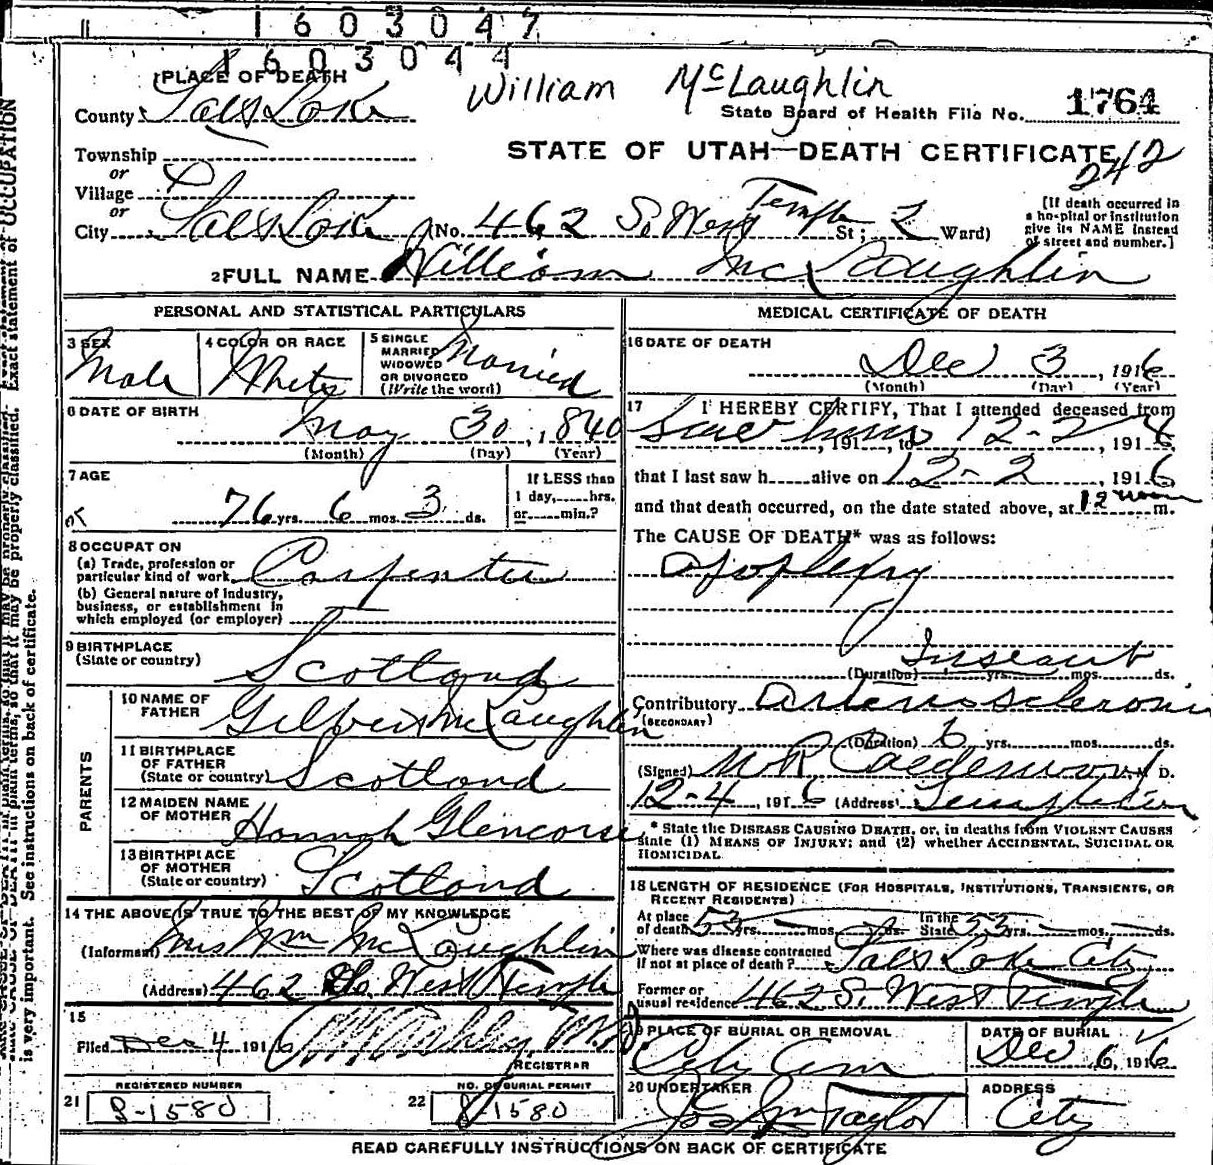 1603047
1603044
1 PLACE OF DEATH
William McLaughlin
County Salt Lake
State Board of Health File No. 1764
Township
STATE OF UTAH—DEATH CERTIFICATE
242
or
Village
or
City Salt Lake (No. 462 S. West Temple St; 2 Ward)
[If death occurred in
a hospital or institution
give its NAME instead
of street and number.]
2 FULL NAME William McLaughlin
PERSONAL AND STATISTICAL PARTICULARS
3 SEX
Male
4 COLOR OR RACE
White
5 SINGLE
MARRIED
WIDOWED
OR DIVORCED
(Write the word)
Married
6 DATE OF BIRTH
May 30, 1840
(Month) (Day) (Year)
7 AGE
76 yrs. 6 mos. 3 ds.
If LESS than
1 day,......hrs.
or......min.?
8 OCCUPATION
(a) Trade, profession or
particular kind of work Carpenter
(b) General nature of industry,
business, or establishment in
which employed (or employer)
9 BIRTHPLACE
(State or country)
Scotland
PARENTS
10 NAME OF
FATHER
Gilbert McLaughlin
11 BIRTHPLACE
OF FATHER
(State or country) Scotland
12 MAIDEN NAME
OF MOTHER
Hannah Glencorse
13 BIRTHPLACE
OF MOTHER
(State or country) Scotland
14 THE ABOVE IS TRUE TO THE BEST OF MY KNOWLEDGE
(Informant) Mrs Wm McLaughlin
(Address) 462 So. West Temple
15
Filed Dec 4 1916 M.D.
REGISTRAR
REGISTERED NUMBER
21 8-1580
NO. OF BURIAL PERMIT
22 8-1580
MEDICAL CERTIFICATE OF DEATH
16 DATE OF DEATH
Dec 3, 1916
(Month) (Day) (Year)
17 I HEREBY CERTIFY, That I attended deceased from
, 191 , to 12-2, 1916
that I last saw h......alive on 12-2, 1916
and that death occurred, on the date stated above, at 12 noon m.
The CAUSE OF DEATH* was as follows:
Apoplexy
Instant
(Duration) yrs. mos. ds.
Contributory Arteriosclerosis
(SECONDARY)
(Duration) 6 yrs. mos. ds.
(Signed) M R Calderwood M. D.
12-4, 1916 (Address)
* State the DISEASE CAUSING DEATH, or, in deaths from VIOLENT CAUSES
state (1) MEANS OF INJURY; and (2) whether ACCIDENTAL, SUICIDAL OR
HOMICIDAL.
18 LENGTH OF RESIDENCE (FOR HOSPITALS, INSTITUTIONS, TRANSIENTS, OR
RECENT RESIDENTS)
At place
of death 53 yrs. mos. ds.
In the
State 53 yrs. mos. ds.
Where was disease contracted
if not at place of death? Salt Lake City
Former or
usual residence 462 S. West Temple
19 PLACE OF BURIAL OR REMOVAL
City Cem
DATE OF BURIAL
Dec 6, 1916
20 UNDERTAKER
Jos Wm Taylor
ADDRESS
City
READ CAREFULLY INSTRUCTIONS ON BACK OF CERTIFICATE
Exact statement of OCCUPATION
is very important. See instructions on back of certificate.